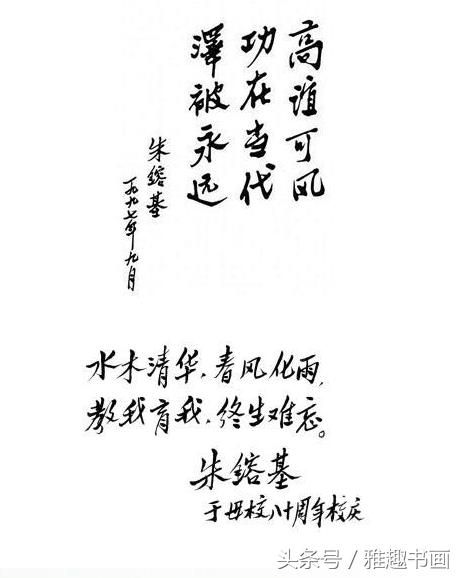 高谊可风
功在当代
泽被永远
朱镕基
一九九七年九月
水木清华，春风化雨，
教我育我，终生难忘。
朱镕基
于母校八十周年校庆
头条号 / 雅趣书画